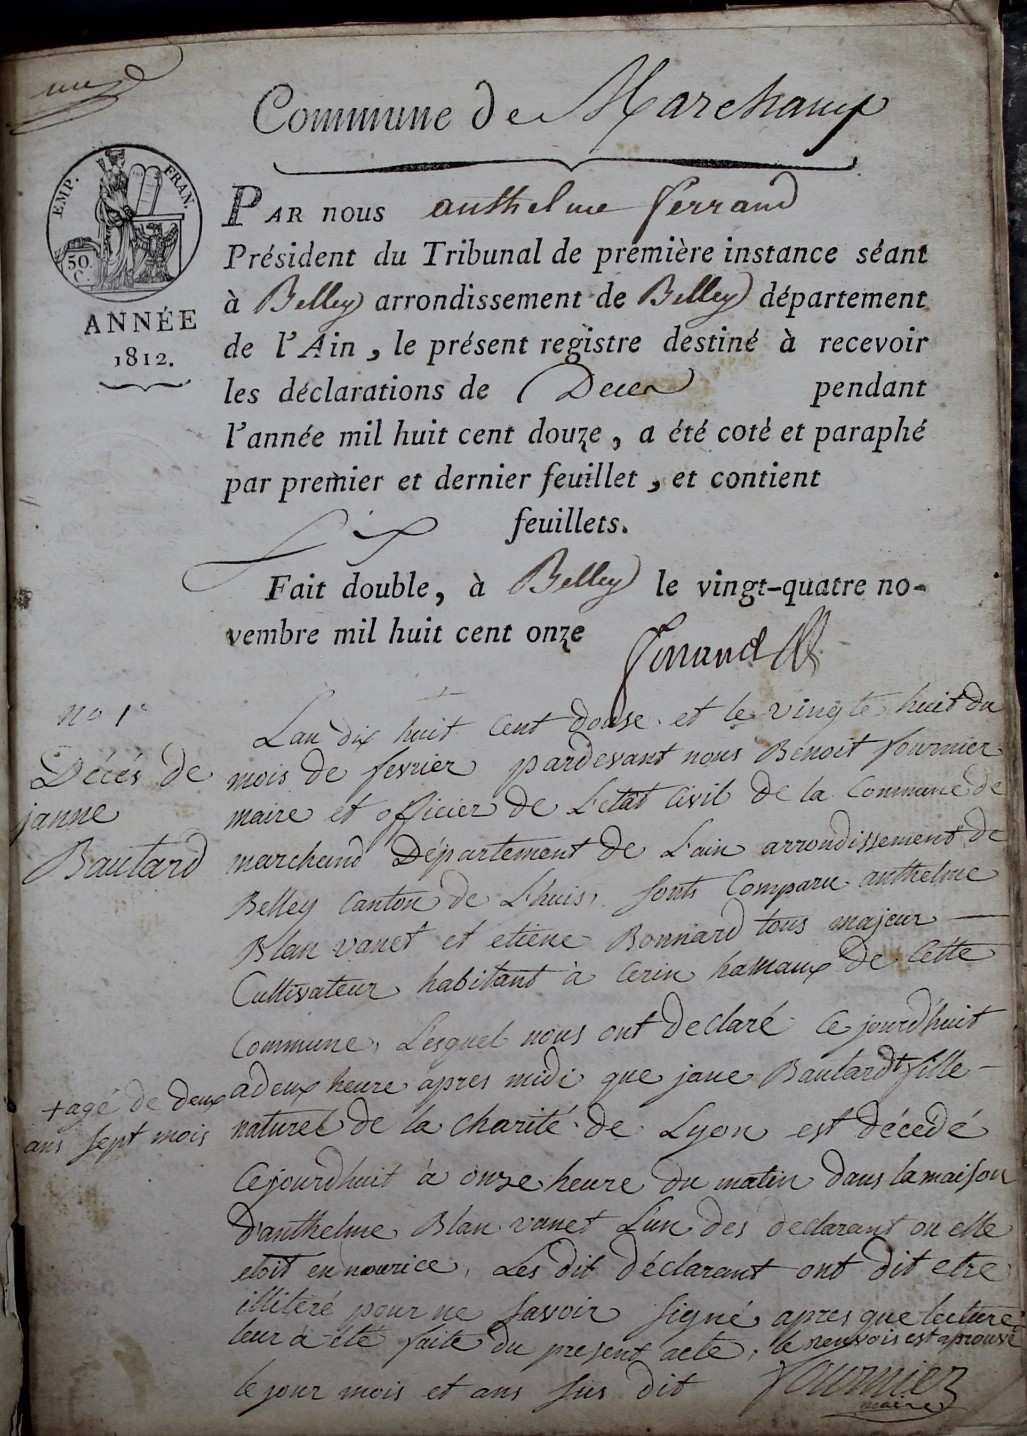 une
Commune de Marchamp
EMP. FRAN.
50 C.
ANNÉE
1812.
PAR nous anthelme ferrand
Président du Tribunal de première instance séant
à Belley arrondissement de Belley département
de l'Ain, le présent registre destiné à recevoir
les déclarations de Deces pendant
l'année mil huit cent douze, a été coté et paraphé
par premier et dernier feuillet, et contient
six feuillets.
Fait double, à Belley le vingt-quatre no-
vembre mil huit cent onze
ferrand
no 1e
Décés de
janne
Baulard
Lan dix huit Cent douse et le vingte huit du
mois de fevrier pardevant nous Benoit fournier
maire et officier de Letat Civil de la Commune de
marchand Département de Lain arrondissement de
Belley Canton de Lhuis, sonts Comparu anthelme
Blan vanet et etiene Bonnard tous majeur
Cultivateur habitant à Cerin hamaux de Cette
Commune, Lesquel nous ont declaré Ce jourd'huit
adeux heure apres midi que jane Baulardt fille
+agé de deux
ans sept mois
naturel de la charité de Lyon est décédé
Cejourdhuit à onze heure du matin dans la maison
d'anthelme Blan vanet L'un des declarant ou elle
etoit en nourice, Les dit déclarant ont dit etre
illiteré pour ne savoir signé apres que lecture
leur à été faite du present acte, le renvois est aprouvé
le jour mois et ans sus dit fournier
maire